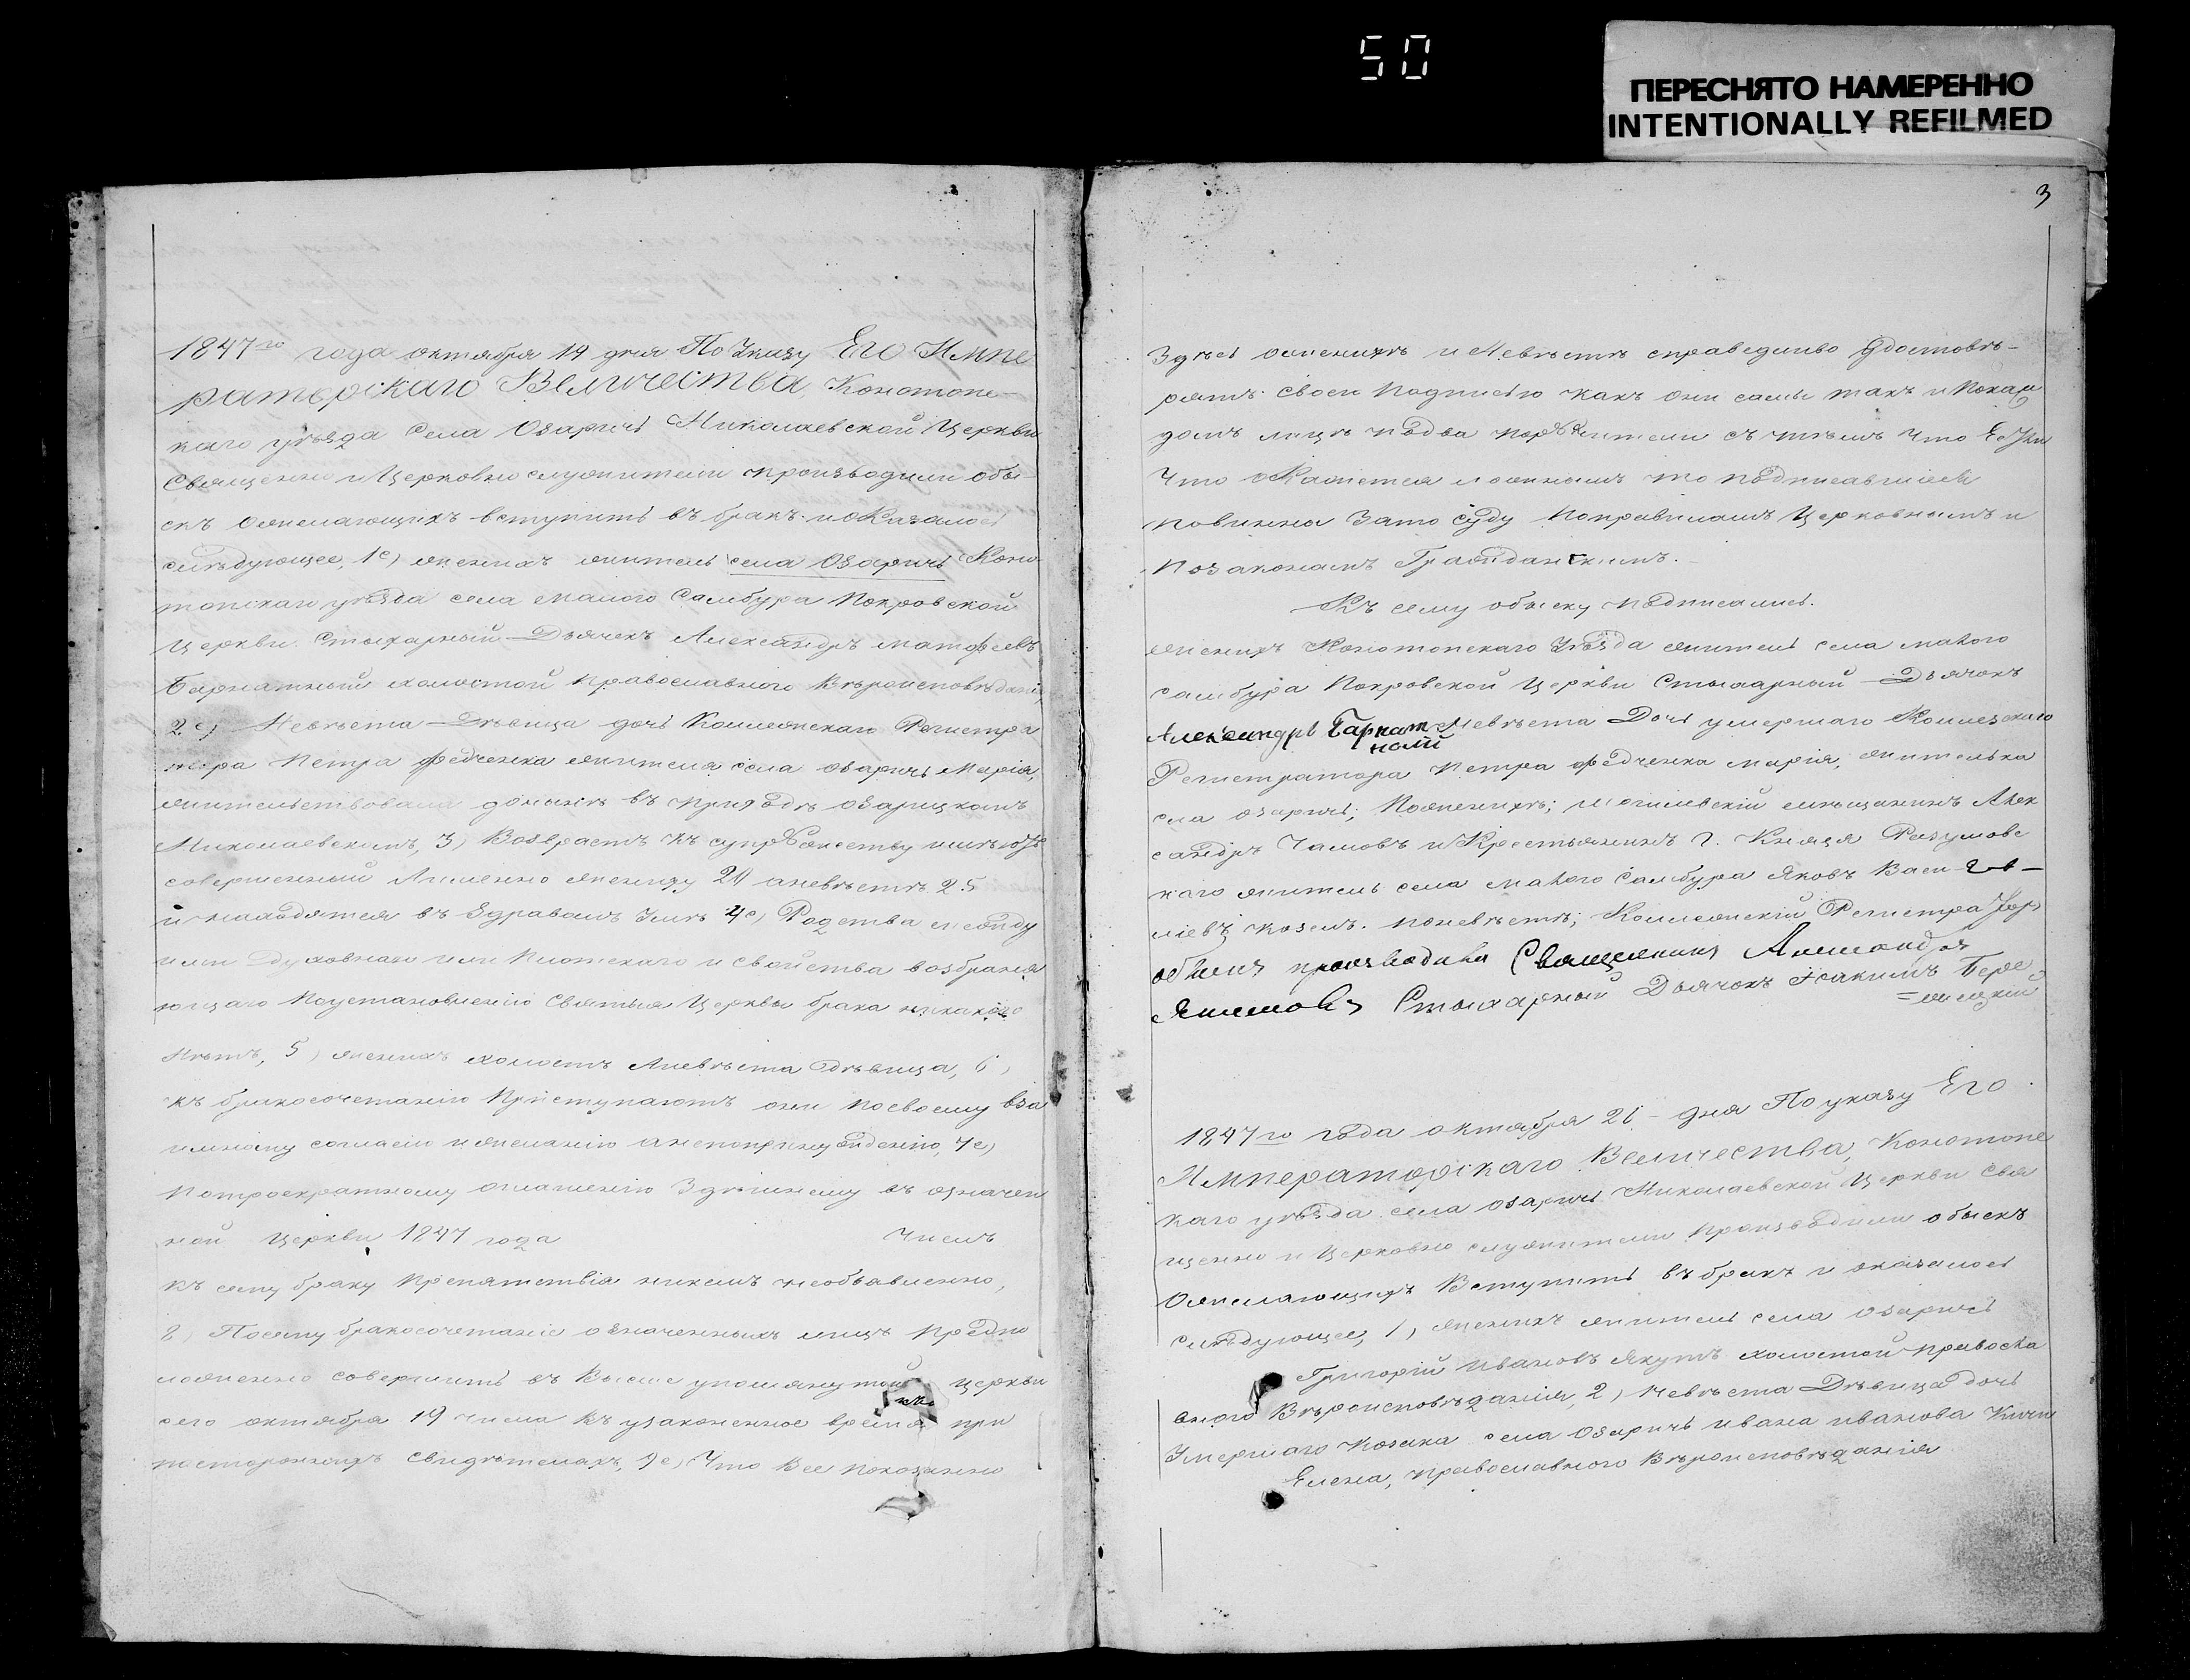 50
ПЕРЕСНЯТО НАМЕРЕННО
INTENTIONALLY REFILMED
1847го года октября 19 дня По Указу Его Импе
раторскаго Величества, Конотопс-
каго уѣзда Села Озаричъ Николаевской Церкви
Священно и Церковно служители производили обы-
скъ о желающихъ вступить въ бракъ и оказалось
слѣдующее, 1е) женихъ житель села Озаричъ Коно
топскаго уѣзда села малого Самбура Покровской
Церкви Стыхарный Дьячекъ Александръ матфеевъ
холостой православного Вѣроисповѣданія,
2е) Невѣста Дѣвица дочь Коллежскаго Регистра
тора Петра Федченка жителя села озаричъ Марія,
жительствовала донынѣ въ приходѣ озарицкомъ
Николаевскомъ, 3) Возврастъ къ супружеству имѣютъ
совершенный А именно жениху 20 а невѣстѣ 25
и находятся въ Здравомъ Умѣ 4е) Родства между
ими духовнаго или Плотскаго и свойства возбраня
ющаго По установленію Святыя Церквы брака никакого
Нѣтъ, 5) женихъ холостъ А невѣста дѣвица, 6)
къ бракосочетанію Приступаютъ они по своему вза
имному согласію и желанію а не по принужденію, 7е)
По троекратному оглашенію Здѣшнему въ означен
ной Церкви 1847 года Числъ
къ сему браку Препятствія никемъ необъявленно,
8) Посему бракосочетаніе означенныхъ лицъ Предпо
ложенно совершить въ Выше упомянутой Церкви
сего октября 19 числа въ узаконенное время при
посторонныхъ свидѣтеляхъ, 9е) Что Все показанно
3
Здѣсь о женихѣ и Невѣстѣ справедливо Удостовѣ-
ряютъ своею Подписью какъ они самы такъ и По каж
домъ лицѣ по два поручители съ тѣмъ что Если
Что окажется ложнымъ то подписавшіесь
повинны За то суду По правиламъ Церковнымъ и
По законамъ Гражданскимъ.
Къ сему обыску подписались.
женихъ Конотопскаго Уѣзда житель села малого
самбура Покровской Церкви Стыхарный Дьячокъ
Александръ Невѣста Дочь умершаго Коллезскаго
Регистратора Петра Федченка марія, жителька
села озаричъ; По женихѣ; могилевскій мѣщанинъ Алек
сандръ Чамовъ и Крестьянинъ Г. Князя Разумовс
каго житель села малого самбура Яковъ Васи
ліевъ козелъ. По невѣстѣ; Коллежскій Регистра
обыскъ производилъ Священникъ
Стыхарный Дьячокъ Іоакимъ
1847го года октября 26 дня По указу Его
Императорскаго Величества, Конотопс
каго уѣзда села озаричъ Николаевской Церкви Свя
щенно и Церковно служители производили обыскъ
О желающихъ Вступить въ бракъ и оказалось
слѣдующее, 1) женихъ житель села озаричъ
Григорій Ивановъ Якутъ холостой правосла
вного Вѣроисповѣданія, 2) Невѣста Дѣвица дочь
Умершаго Козака села Озаричъ ивана иванова
Елена, православного Вѣроисповѣданія